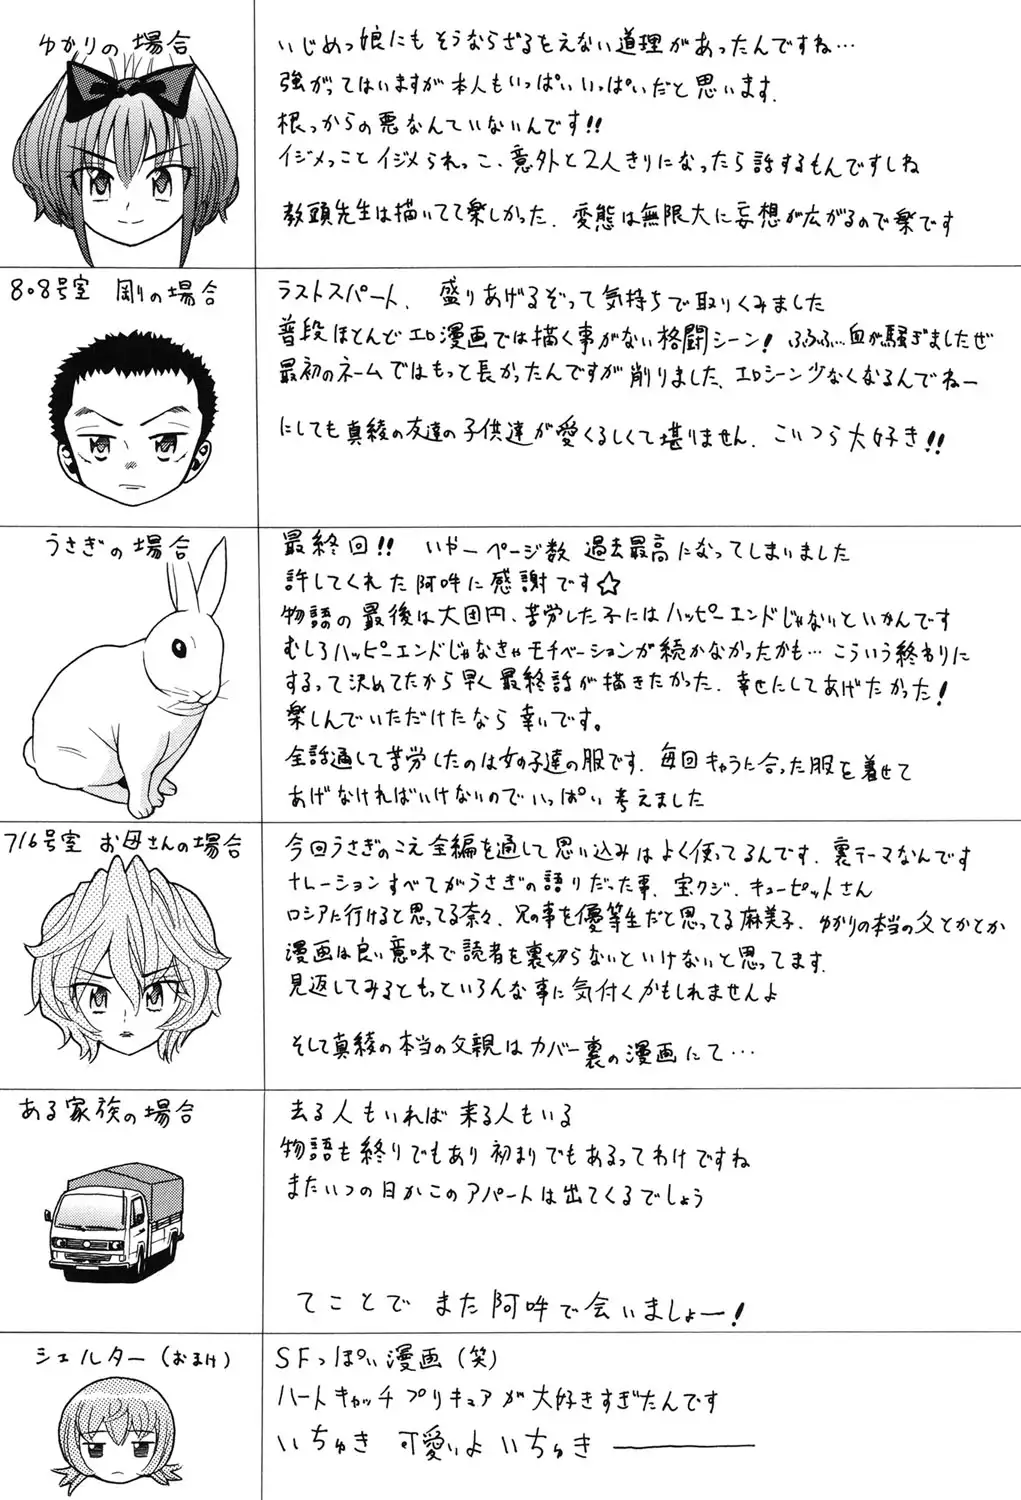 ゆかりの場合
いじめっ娘にもそうならざるをえない道理があったんですね…
強がってはいますが本人もいっぱいいっぱいだと思います.
根っからの悪なんていないんです!!
イジメっことイジメられっこ、意外と2人きりになったら話するもんですしね
教頭先生は描いてて楽しかった. 変態は無限大に妄想が広がるので楽です
808号室 剛りの場合
ラストスパート、盛りあげるぞって気持ちで取りくみました
普段ほとんどエロ漫画では描く事がない格闘シーン! ふふふ…血が騒ぎましたぜ
最初のネームではもっと長かったんですが削りました、エロシーン少なくなるんでねー
にしても真綾の友達の子供達が愛くるしくて堪りません. こいつら大好き!!
うさぎの場合
最終回!! いやーページ数 過去最高になってしまいました
許してくれた阿吽に感謝です☆
物語の最後は大団円、苦労した子にはハッピーエンドじゃないといかんです
むしろハッピーエンドじゃなきゃモチベーションが続かなかったかも… こういう終わりに
するって決めてたから早く最終話が描きたかった. 幸せにしてあげたかった!
楽しんでいただけたなら幸いです。
全話通して苦労したのは女の子達の服です. 毎回キャラに合った服を着せて
あげなければいけないのでいっぱい考えました
716号室 お母さんの場合
今回うさぎのこえ全編を通して思い込みはよく使ってるんです. 裏テーマなんです
ナレーションすべてがうさぎの語りだった事、宝クジ、キューピットさん
ロシアに行けると思ってる奈々、兄の事を優等生だと思ってる麻美子、ゆかりの本当の父とかとか
漫画は良い意味で読者を裏切らないといけないと思ってます.
見返してみるともっといろんな事に気付くかもしれませんよ
そして真綾の本当の父親はカバー裏の漫画にて…
ある家族の場合
去る人もいれば来る人もいる
物語も終りでもあり初まりでもあるってわけですね
またいつの日かこのアパートは出てくるでしょう
てことで また阿吽で会いましょー!
シェルター(おまけ)
SFっぽい漫画(笑)
ハートキャッチプリキュアが大好きすぎたんです
いちゅき 可愛いよ いちゅき ―――